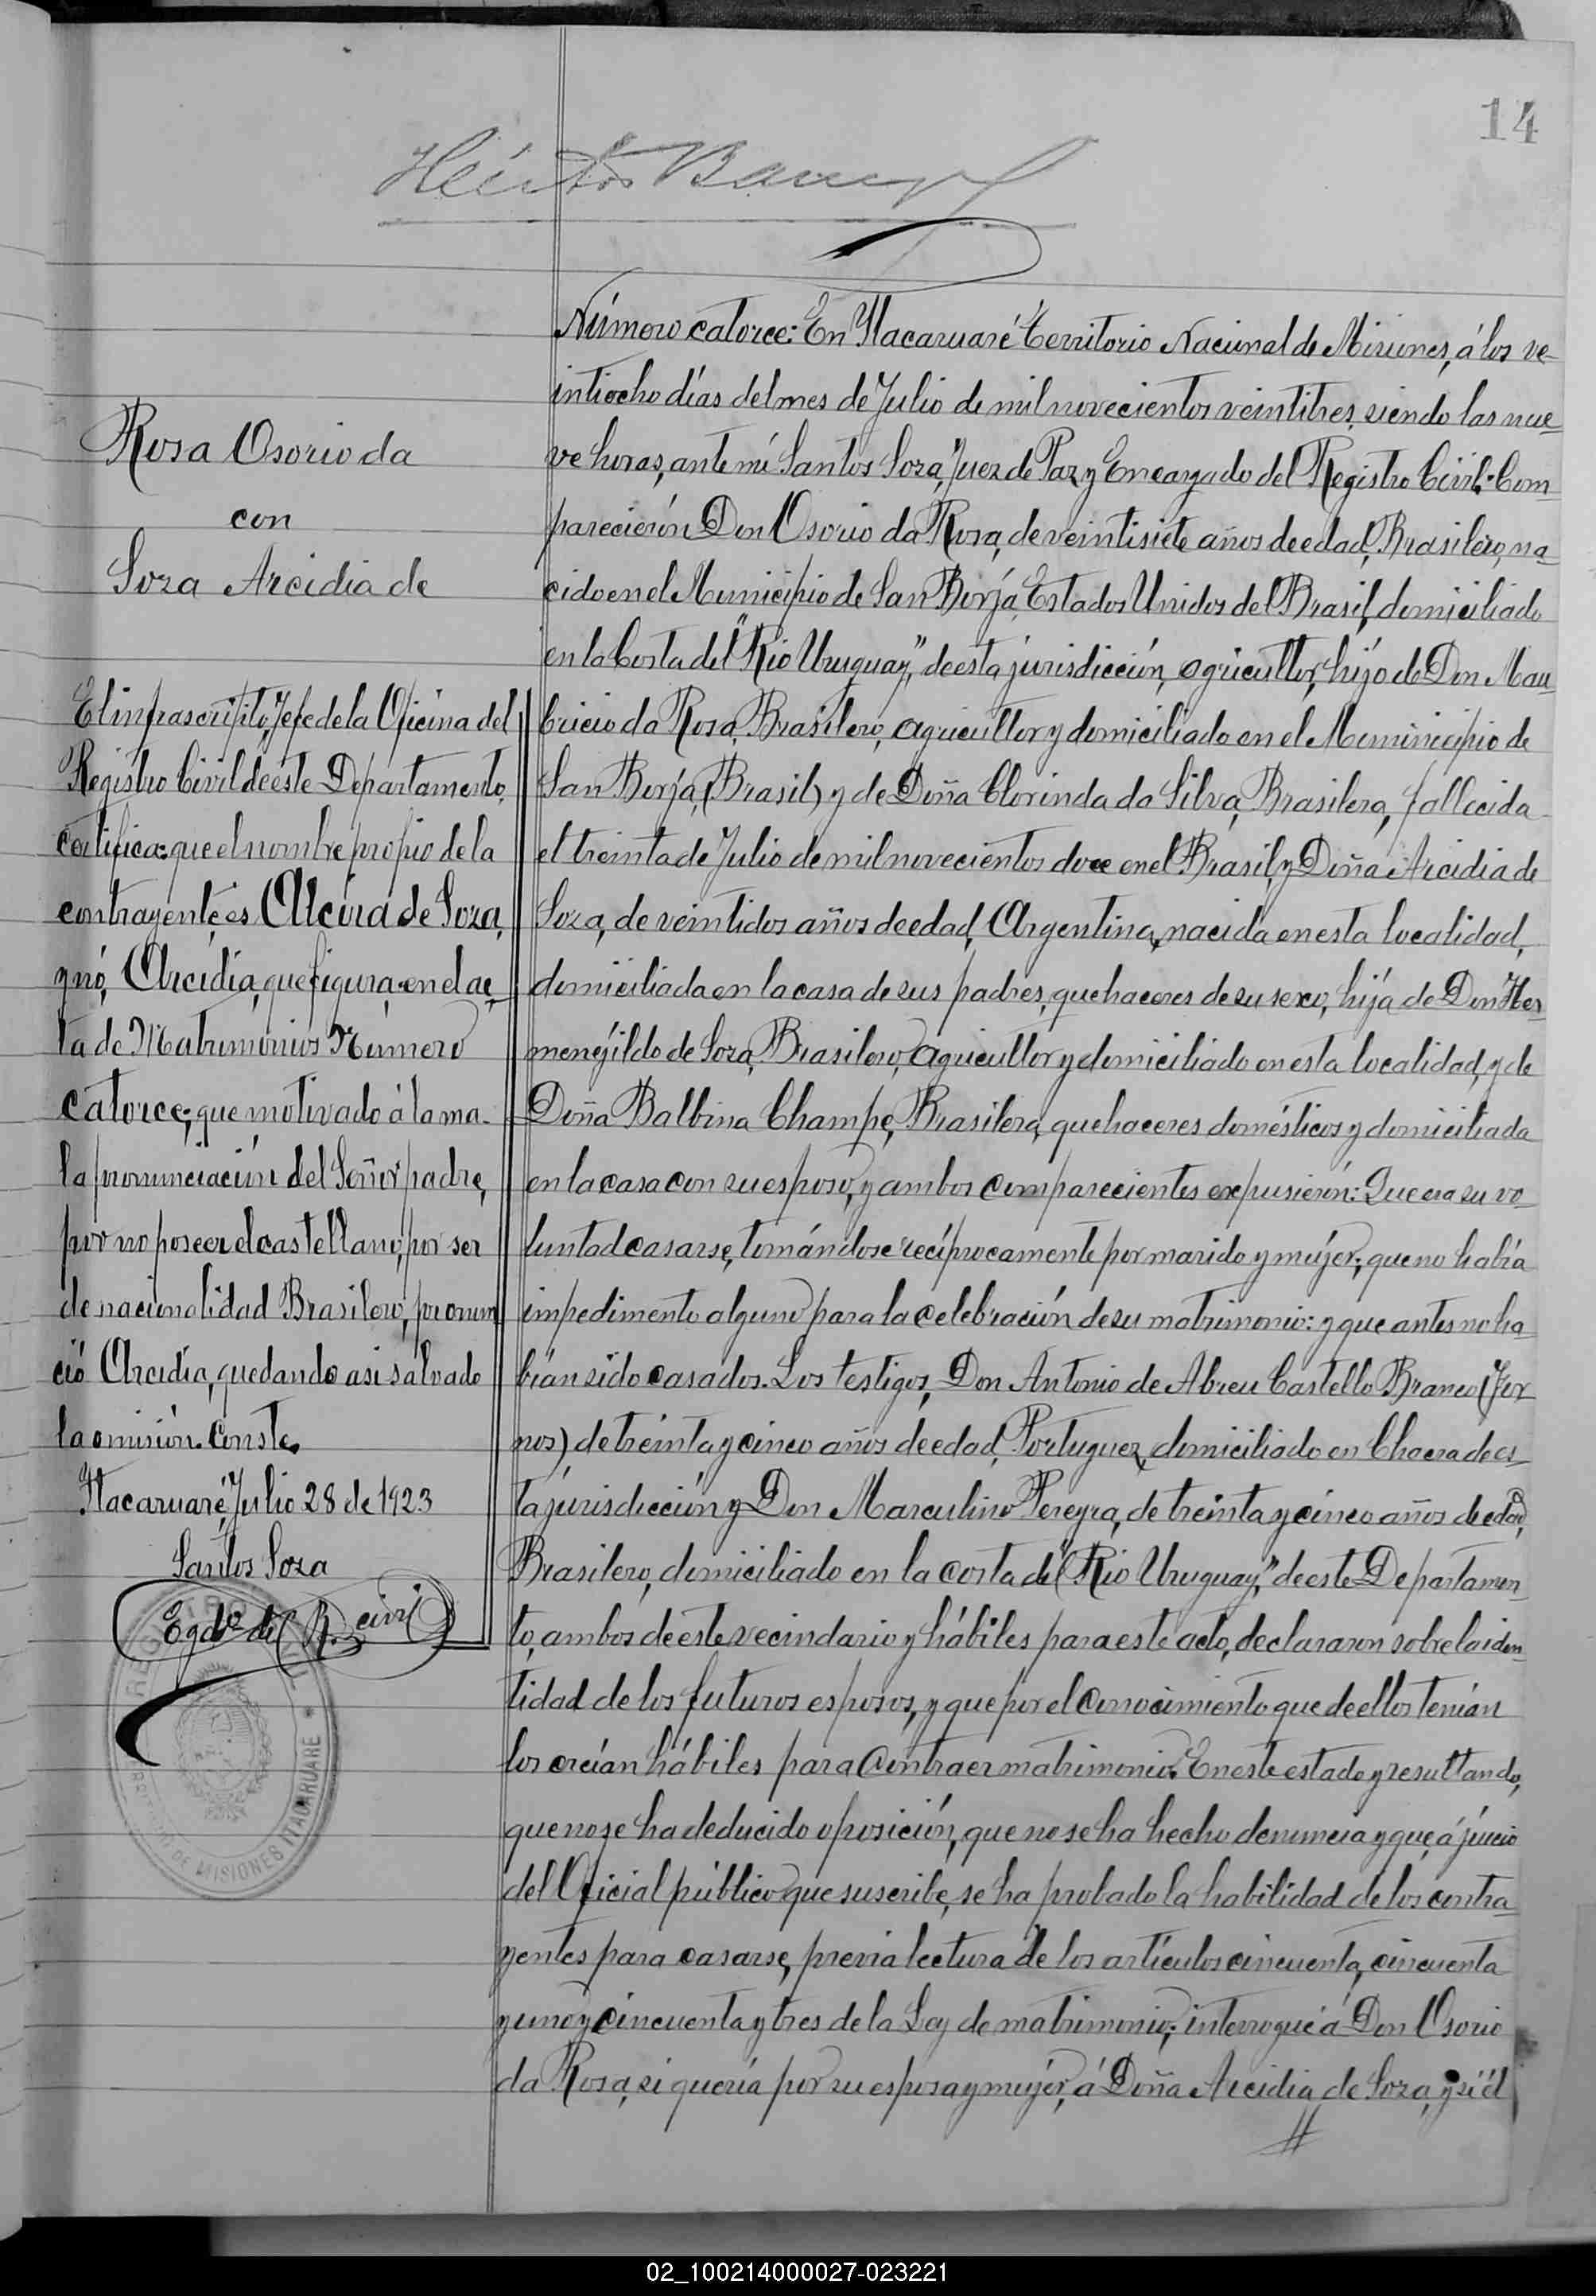 14
Héctor
Rosa Osorio da
con
Soza Arcidia de
El infrascripito, Jefe de la Oficina del
Registro Civil de éste Departamento,
certifica: que el nombre propio de la
contrayente, es Alcira de Soza,
y nó, Arcidia, que figura en el ac
ta de Matrimonios Número
catorce; que motivado á la ma-
la pronunciación del Señor padre,
por no poseer el castellano, por ser
de nacionalidad Brasilero, pronun
ció Arcidia, quedando asi salvado
la omisión. Conste.
Itacaruaré, Julio 28 de 1923
Santos Soza
Egdo del R. Civil
REGISTRO CIVIL
TERRITORIO DE MISIONES ITACARUARE
Número catorce: En Itacaruaré Territorio Nacional de Misiones, á los ve-
intiocho días del mes de Julio de mil novecientos veintitres, siendo las nue-
ve horas, ante mí Santos Soza, Juez de Paz y Encargado del Registro Civil. Com-
parecierón Don Osorio da Rosa, de veintisiete años de edad, Brasilero, na-
cido en el Municipio de San Borja, Estados Unidos del Brasil, domiciliado
en la Costa del "Rio Uruguay," de esta jurisdicción, agricultor, hijo de Don Mau-
bricio da Rosa, Brasilero, agricultor y domiciliado en el Muninicipio de
San Borja, (Brasil) y de Doña Clorinda da Silva, Brasilera, fallecida
el treinta de Julio de mil novecientos doce en el Brasil, y Doña Arcidia de
Soza, de veintidos años de edad, Argentina, nacida en esta localidad,
domiciliada en la casa de sus padres, quehaceres de su sexo, hija de Don Her-
menegildo de Soza, Brasilero, agricultor y domiciliado en esta localidad, y de
Doña Balbina Champe, Brasilera, quehaceres domésticos y domiciliada
en la casa con su esposo, y ambos comparecientes expusierón: Que era su vo-
luntad casarse, tomándose recíprocamente por marido y mujer; que no había
impedimento alguno para la celebración de su matrimonio: y que antes no ha-
bían sido casados. Los testigos, Don Antonio de Abreu Castello Branco (
nos), de treinta y cinco años de edad, Portuguez, domiciliado en Chacra de es-
ta jurisdicción y Don Marculino Pereyra, de treinta y cinco años de edad,
Brasilero, domiciliado en la costa del "Rio Uruguay," de este Departamen-
to, ambos de este vecindario y hábiles para este acto, declararon sobre la iden-
tidad de los futuros esposos, y que por el conocimiento que de ellos tenían
los creían hábiles para contraer matrimonio. En este estado y resultando,
que no se ha deducido oposición, que no se ha hecho denuncia y que, á juicio
del Oficial público que suscribe, se ha probado la habilidad de los contra-
yentes para casarse, previa lectura de los artículos cincuenta, cincuenta
y uno y cincuenta y tres de la Ley de matrimonio; interrogué á Don Osorio
da Rosa, si quería por su esposa y mujer, á Doña Arcidia de Soza, y si él
//
02_100214000027-023221